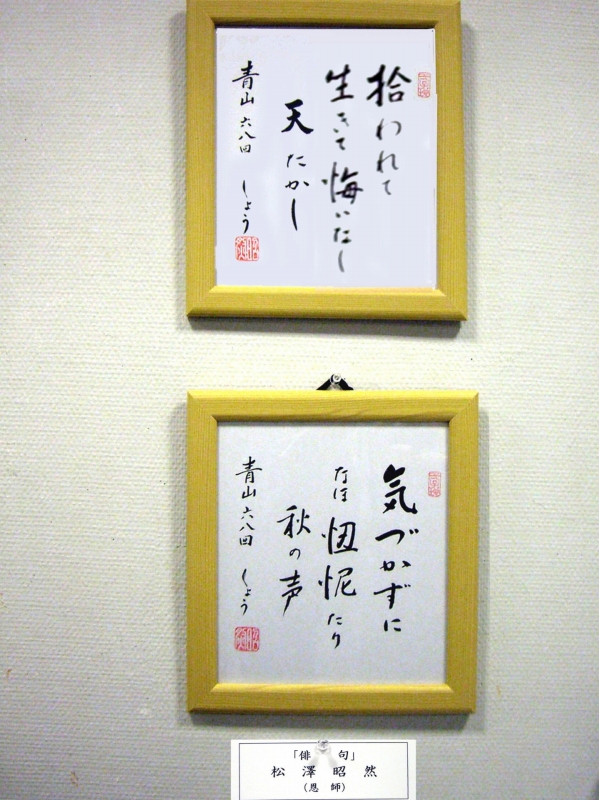 拾われて
生きて悔いなし
天たかし
青山六八回 しょう
気づかずに
なほ忸怩たり
秋の声
青山六八回 しょう
「俳 句」
松 澤 昭 然
（恩 師）